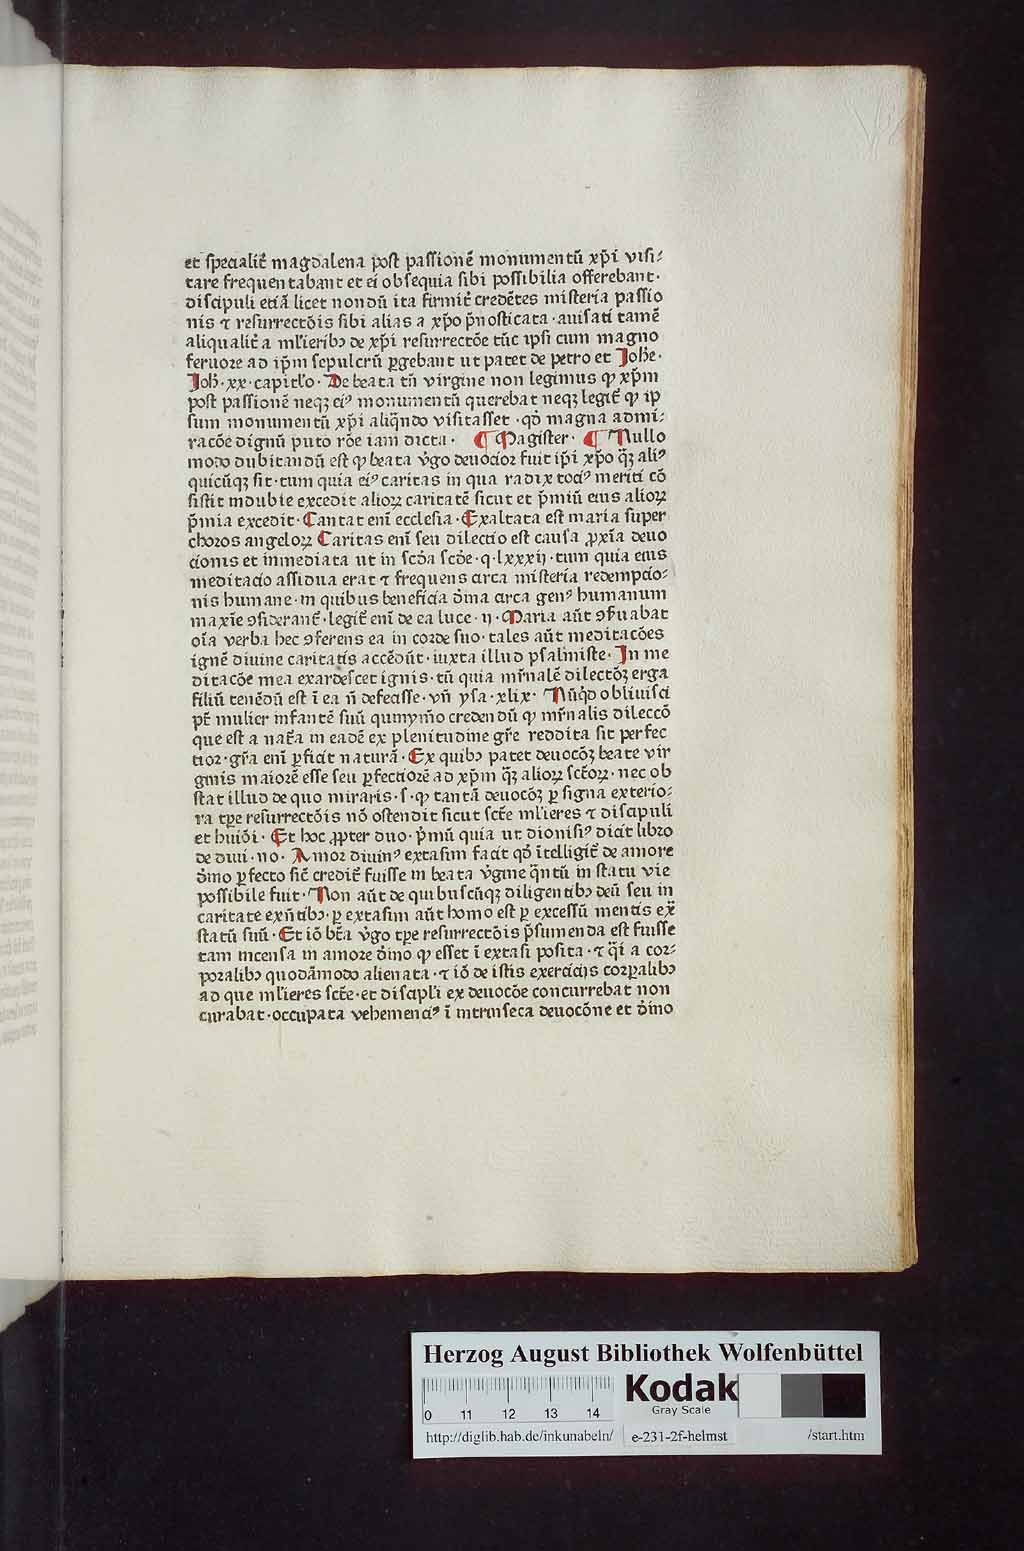 et specialit̃ magdalena post passionē monumentū xp̄i visi⸗
tare frequentabant et ei obsequia sibi possibilia offerebant·
discipuli etiā licet nondū ita firmit̃ credētes misteria passio
nis ⁊ resurrectōis sibi alias a xp̄o p̄nosticata·auisati tamē
aliqualit̃ a ml̓ieribꝫ de xp̄i resurrectōe tūc ipsi cum magno
feruore ad ip̄m sepulcrū ꝑgebant ut patet de petro et Joh̄e·
Joh̄·xx·capitl̓o·De beata tn̄ virgine non legimus ꝙ xp̄m
post passionē neqꝫ eiꝰ monumentū querebat neqꝫ legit̃ ꝙ ip
sum monumentū xp̄i aliq̄ndo visitasset·qd̄ magna admi⸗
racōe dignū puto rōe iam dicta· ¶ Magister· ¶ Nullo
modo dubitandū est ꝙ beata v̓go deuocior fuit ip̄i xp̄o q̄ꝫ aliꝰ
quicūqꝫ sit·tum quia eiꝰ caritas in qua radix tociꝰ meriti cō
sistit indubie excedit alioꝝ caritatē sicut et p̄miū eius alioꝝ
p̄mia excedit·Cantat enī ecclesia·Exaltata est maria super
choros angeloꝝ Caritas enī seu dilectio est causa ꝓxīa deuo
cionis et inmediata ut in scd̄a scd̄e·q·lxxxij·tum quia eius
meditacio assidua erat ⁊ frequens circa misteria redempcio⸗
nis humane·in quibus beneficia d̄ina circa genꝰ humanum
maxīe ꝯsiderant̃·legit̃ enī de ea luce·ij·Maria aūt ꝯẜuabat
oīa verba hec ꝯferens ea in corde suo·tales aūt meditacōes
ignē diuine caritatis accēdūt·iuxta illud psalmiste·In me
ditacōe mea exardescet ignis·tū quia mr̄nalē dilectōꝫ erga
filiū tenēdū est ī ea n̄ defecisse·vn̄ ysa·xlix· Nūq̇d obliuisci
pt̄ mulier infantē suū quinym̄o credendū ꝙ mr̄nalis dileccō
que est a nat̃a in eadē ex plenitudine gr̄e reddita sit perfec
tior·gr̄a enī ꝑficit naturā·Ex quibꝫ patet deuocōꝫ beate vir
ginis maiorē esse seu ꝑfectiorē ad xp̄m q̄ꝫ alioꝝ sct̄oꝝ·nec ob
stat illud de quo miraris·s·ꝙ tantā deuocōꝫ ꝑ signa exterio⸗
ra tꝑe resurrectōis nō ostendit sicut sct̄e ml̓ieres ⁊ discipuli
et huiōi·Et hoc ꝓpter duo·p̓mū quia ut dionisiꝰ dicit libro
de diui·no·Amor diuinꝰ extasim facit qd̄ ītelligit̃ de amore
d̄ino ꝑfecto sic̄ credit̃ fuisse in beata v̓gine q̄ntū in statu vie
possibile fuit·Non aūt de quibuscūqꝫ diligentibꝫ deū seu in
caritate exn̄tibꝫ·ꝑ extasim aūt homo est ꝑ excessū mentis ex̄
statū suū·Et iō bt̄a v̓go tꝑe resurrectōis p̄sumenda est fuisse
tam incensa in amore d̄ino ꝙ esset ī extasi posita·⁊ q̄i a cor⸗
poralibꝫ quodāmodo alienata·⁊ iō de istis exercicijs corꝑalibꝫ
ad que ml̓ieres sct̄e·et discipl̓i ex deuocōe concurrebat non
curabat·occupata vehemenciꝰ ī intrinseca deuocōne et d̄ino
Herzog August Bibliothek Wolfenbüttel
0 11 12 13 14
Kodak
Gray Scale
http://diglib.hab.de/inkunabeln/ e-231-2f-helmst /start.htm